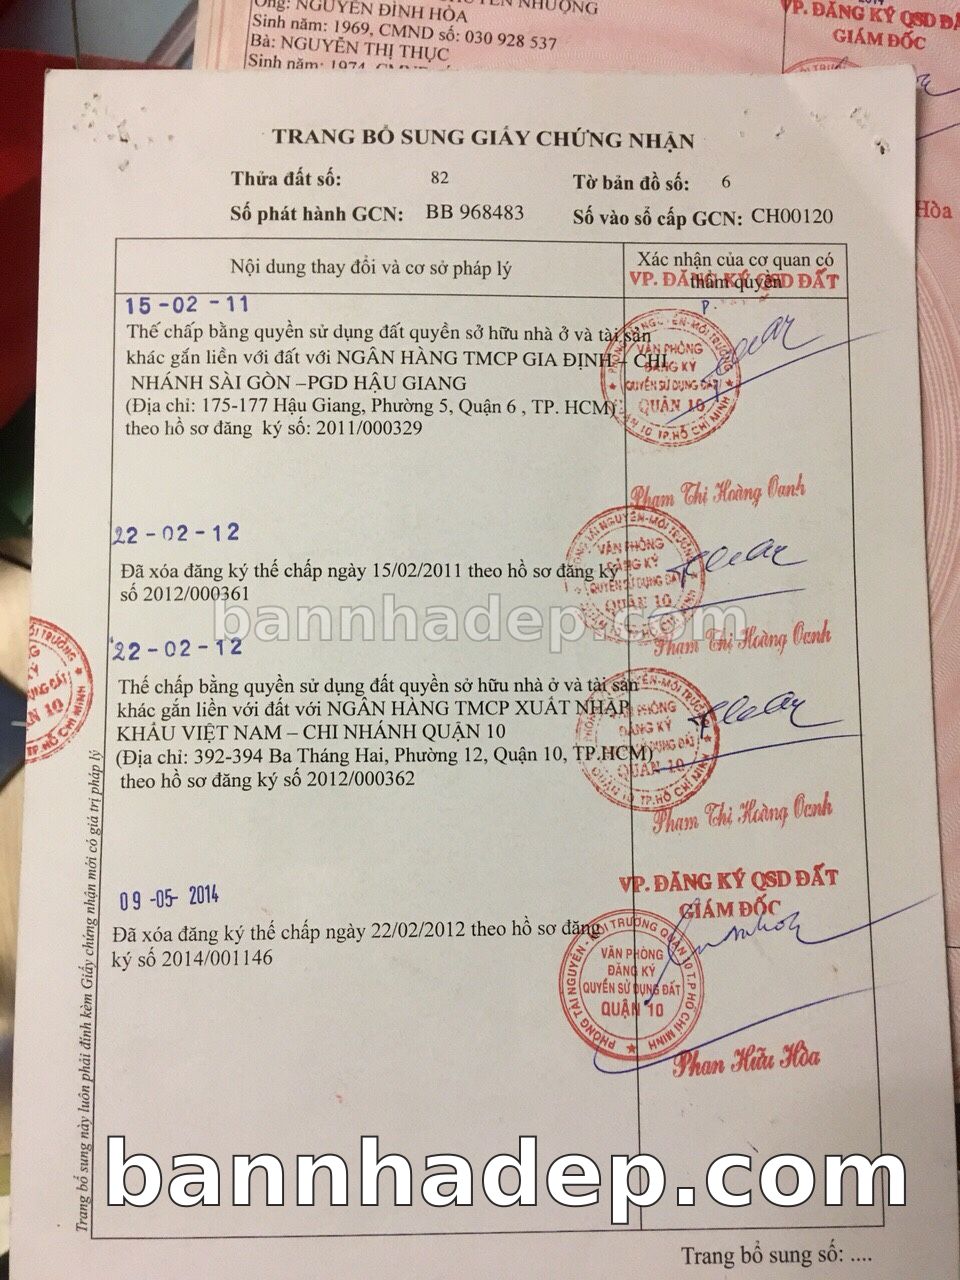 Ông: NGUYỄN ĐÌNH HÒA
Sinh năm: 1969, CMND số: 030 928 537
Bà: NGUYỄN THỊ THỤC
Sinh năm: 1974,
VP. ĐĂNG KÝ QSD
GIÁM ĐỐC
Hòa
TRANG BỔ SUNG GIẤY CHỨNG NHẬN
Thửa đất số: 82 Tờ bản đồ số: 6
Số phát hành GCN: BB 968483 Số vào sổ cấp GCN: CH00120
Nội dung thay đổi và cơ sở pháp lý
Xác nhận của cơ quan có
thẩm quyền
VP. ĐĂNG KÝ QSD ĐẤT
15-02-11
Thế chấp bằng quyền sử dụng đất quyền sở hữu nhà ở và tài sản
khác gắn liền với đất với NGÂN HÀNG TMCP GIA ĐỊNH – CHI
NHÁNH SÀI GÒN –PGD HẬU GIANG
(Địa chỉ: 175-177 Hậu Giang, Phường 5, Quận 6 , TP. HCM)
theo hồ sơ đăng ký số: 2011/000329
VĂN PHÒNG
ĐĂNG KÝ
QUYỀN SỬ DỤNG ĐẤT
QUẬN 10
Phạm Thị Hoàng Oanh
22-02-12
Đã xóa đăng ký thế chấp ngày 15/02/2011 theo hồ sơ đăng ký
số 2012/000361
VĂN PHÒNG
ĐĂNG KÝ
QUYỀN SỬ DỤNG ĐẤT
QUẬN 10
Phạm Thị Hoàng Oanh
bannhadep.com
22-02-12
Thế chấp bằng quyền sử dụng đất quyền sở hữu nhà ở và tài sản
khác gắn liền với đất với NGÂN HÀNG TMCP XUẤT NHẬP
KHẨU VIỆT NAM – CHI NHÁNH QUẬN 10
(Địa chỉ: 392-394 Ba Tháng Hai, Phường 12, Quận 10, TP.HCM)
theo hồ sơ đăng ký số 2012/000362
VĂN PHÒNG
ĐĂNG KÝ
QUYỀN SỬ DỤNG ĐẤT
QUẬN 10
Phạm Thị Hoàng Oanh
09-05-2014
Đã xóa đăng ký thế chấp ngày 22/02/2012 theo hồ sơ đăng
ký số 2014/001146
VP. ĐĂNG KÝ QSD ĐẤT
GIÁM ĐỐC
PHÒNG TÀI NGUYÊN - MÔI TRƯỜNG QUẬN 10 T.P HỒ CHÍ MINH
VĂN PHÒNG
ĐĂNG KÝ
QUYỀN SỬ DỤNG ĐẤT
QUẬN 10
Phan Hữu Hòa
Trang bổ sung này luôn phải đính kèm Giấy chứng nhận mới có giá trị pháp lý
bannhadep.com
Trang bổ sung số: ....